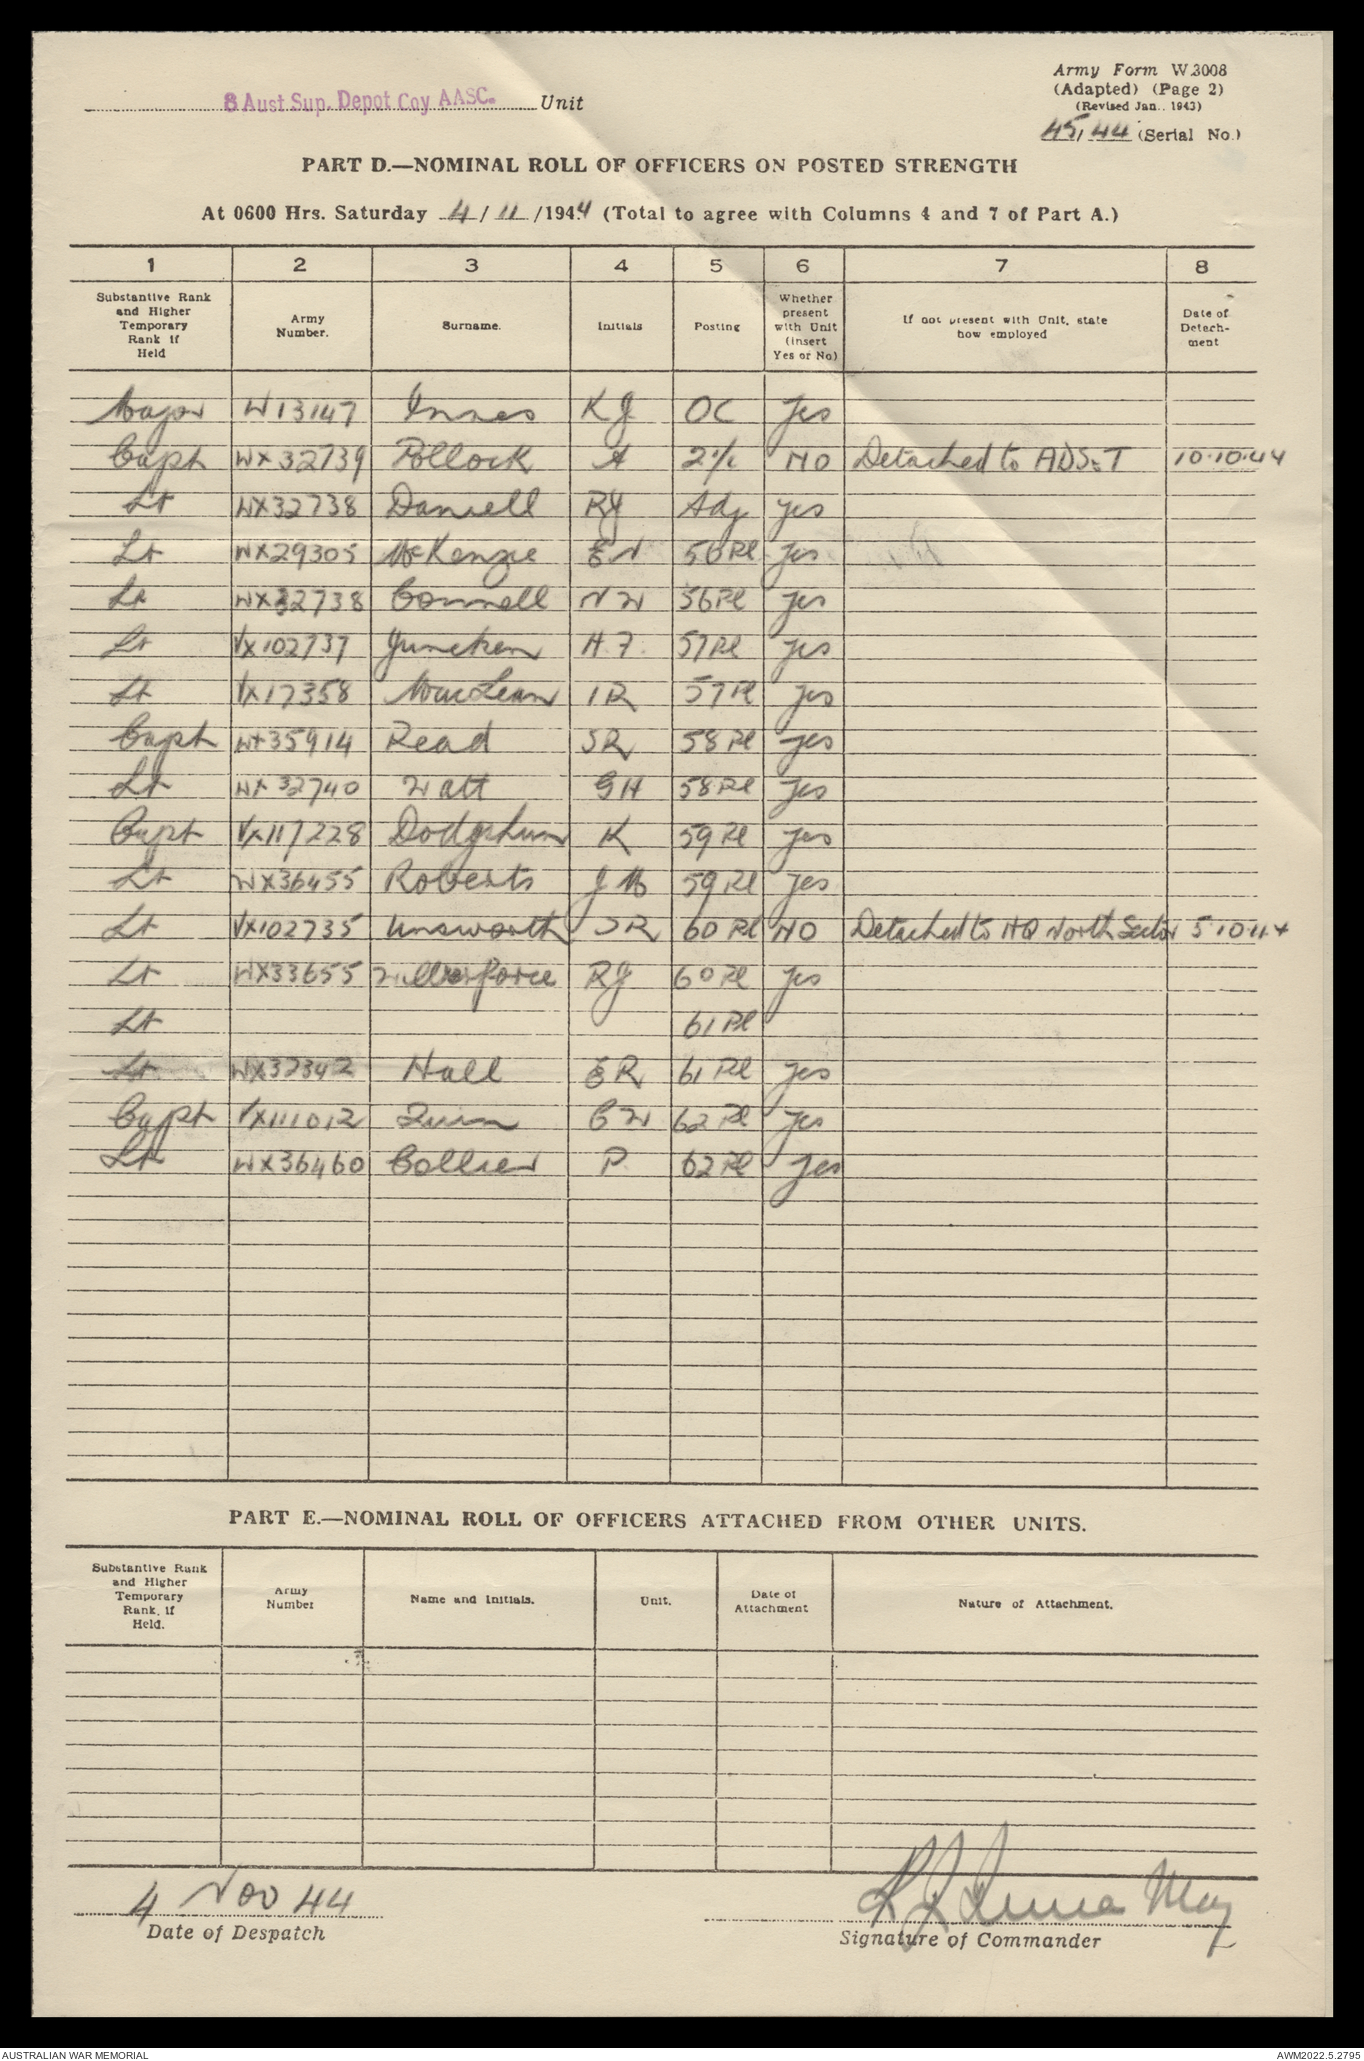 8 Aust Sup. Depot Coy AASC. Unit
Army Form W.3008
(Adapted) (Page 2)
(Revised Jan.. 1943)
45/44 (Serial No.)
PART D.—NOMINAL ROLL OF OFFICERS ON POSTED STRENGTH
At 0600 Hrs. Saturday 4/11/1944 (Total to agree with Columns 4 and 7 of Part A.)
1 2 3 4 5 6 7 8
Substantive Rank and Higher Temporary Rank if Held Army Number. Surname. Initials Posting Whether present with Unit (insert Yes or No) If not present with Unit, state how employed Date of Detach-ment
Major W13147 Innes KJ OC Yes
Capt WX32739 Pollock A 2i/c NO Detached to ADS&T 10.10.44
Lt WX32738 Daniell RJ Adj Yes
Lt WX29305 McKenzie EN 56Pl Yes
Lt WX32738 Connell NW 56Pl Yes
Lt VX102737 Juncken H.F. 57Pl Yes
Lt VX17358 MacLean IR 57Pl Yes
Capt WX35914 Read SR 58Pl Yes
Lt WX32740 Watt GH 58Pl Yes
Capt VX117228 Dodgshun K 59Pl Yes
Lt WX36455 Roberts JM 59Pl Yes
Lt VX102735 Unsworth JR 60Pl NO Detached to HQ North Sector 5.10.44
Lt WX33655 Wilberforce RJ 60Pl Yes
Lt 61Pl
Lt WX32342 Hall ER 61Pl Yes
Capt VX111012 Quin CW 62Pl Yes
Lt WX36460 Collier P 62Pl Yes
PART E.—NOMINAL ROLL OF OFFICERS ATTACHED FROM OTHER UNITS.
Substantive Rank and Higher Temporary Rank, if Held. Army Number Name and Initials. Unit. Date of Attachment Nature of Attachment.
4 Nov 44
Date of Despatch
K J Innes Maj
Signature of Commander
AUSTRALIAN WAR MEMORIAL AWM2022.5.2795